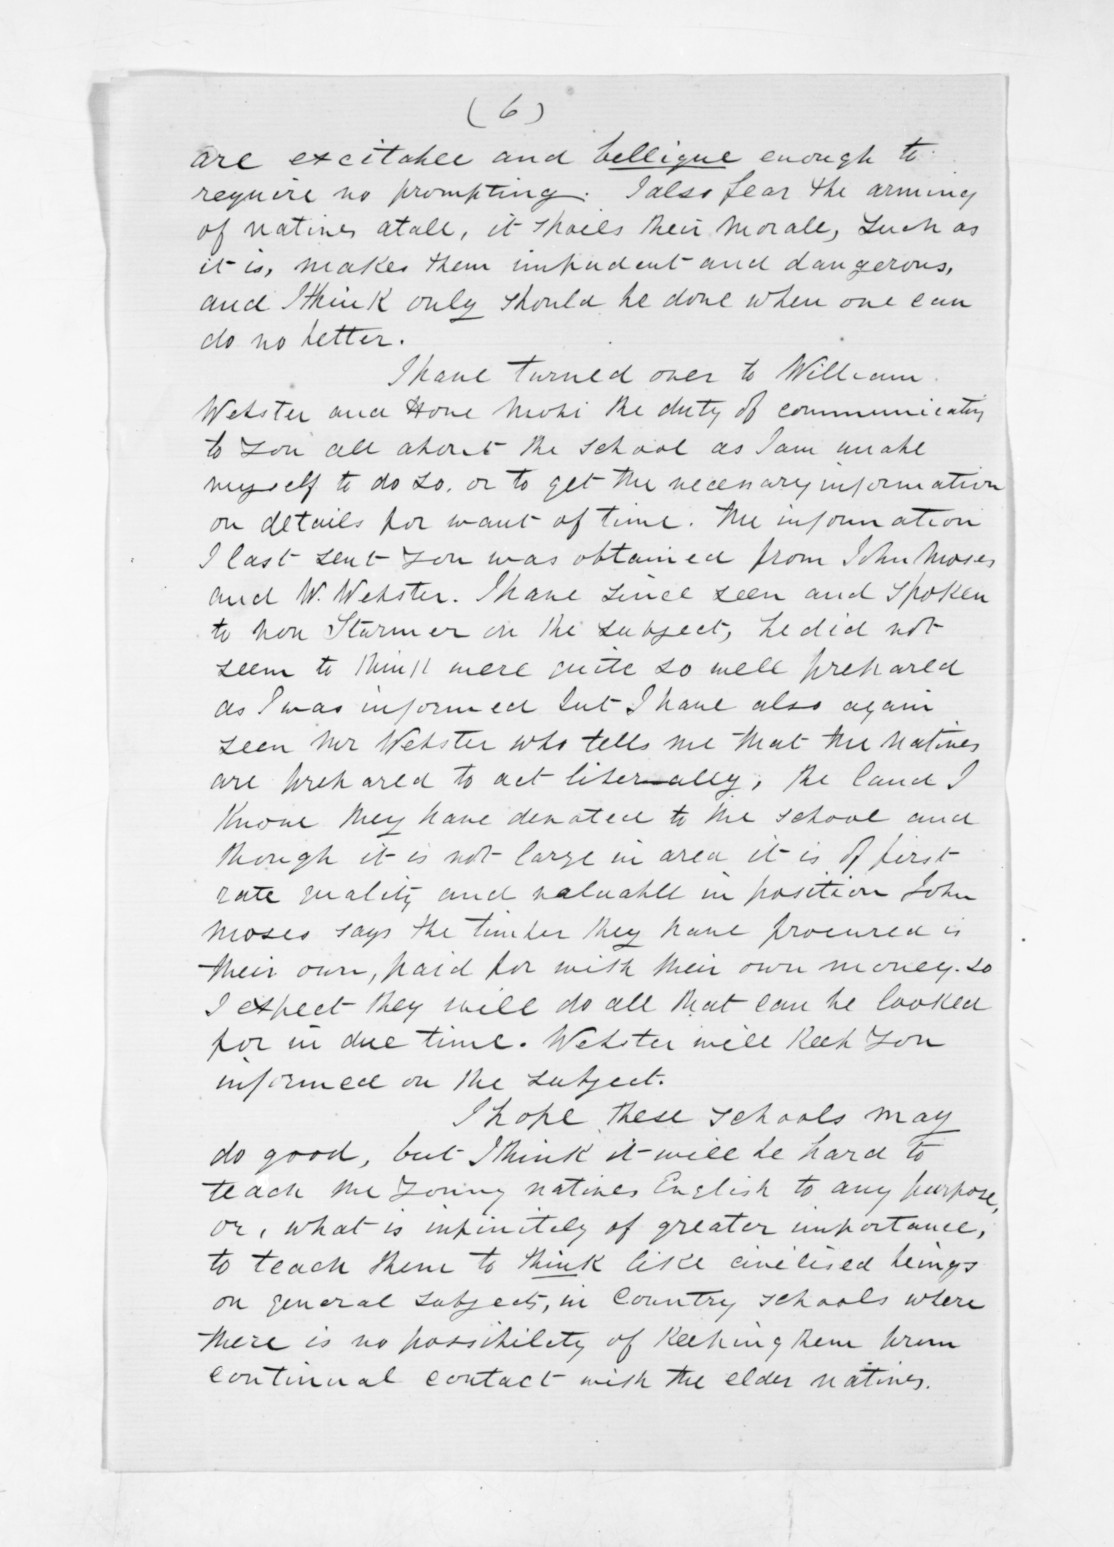 (6)
are excitable and bellique enough to
require no prompting. I also fear the arming
of natives atall, it spoils their morale, such as
it is, makes them impudent and dangerous,
and I think only should be done when one can
do no better.
I have turned over to William
Webster and Hone Mohi the duty of communicating
to you all about the school as I am unable
myself to do so. or to get the necessary information
on details for want of time. The information
I last sent you was obtained from John Moses
and W. Webster. I have since seen and spoken
to Von Sturmer on the subject, he did not
seem to think were quite so well prepared
as I was informed but I have also again
seen Mr Webster who tells me that the natives
are prepared to act liberally, the land I
know they have devoted to the school and
though it is not large in area it is of first
rate quality and valuable in position John
Moses says the timber they have procured is
their own, paid for with their own money. so
I expect they will do all that can be looked
for in due time. Webster will keep you
informed on the subject.
I hope these schools may
do good, but I think it will be hard to
teach the young natives English to any purpose,
or, what is infinitely of greater importance,
to teach them to think like civilised beings
on general subjects, in Country schools where
there is no possibility of keeping them from
continual contact with the elder natives.